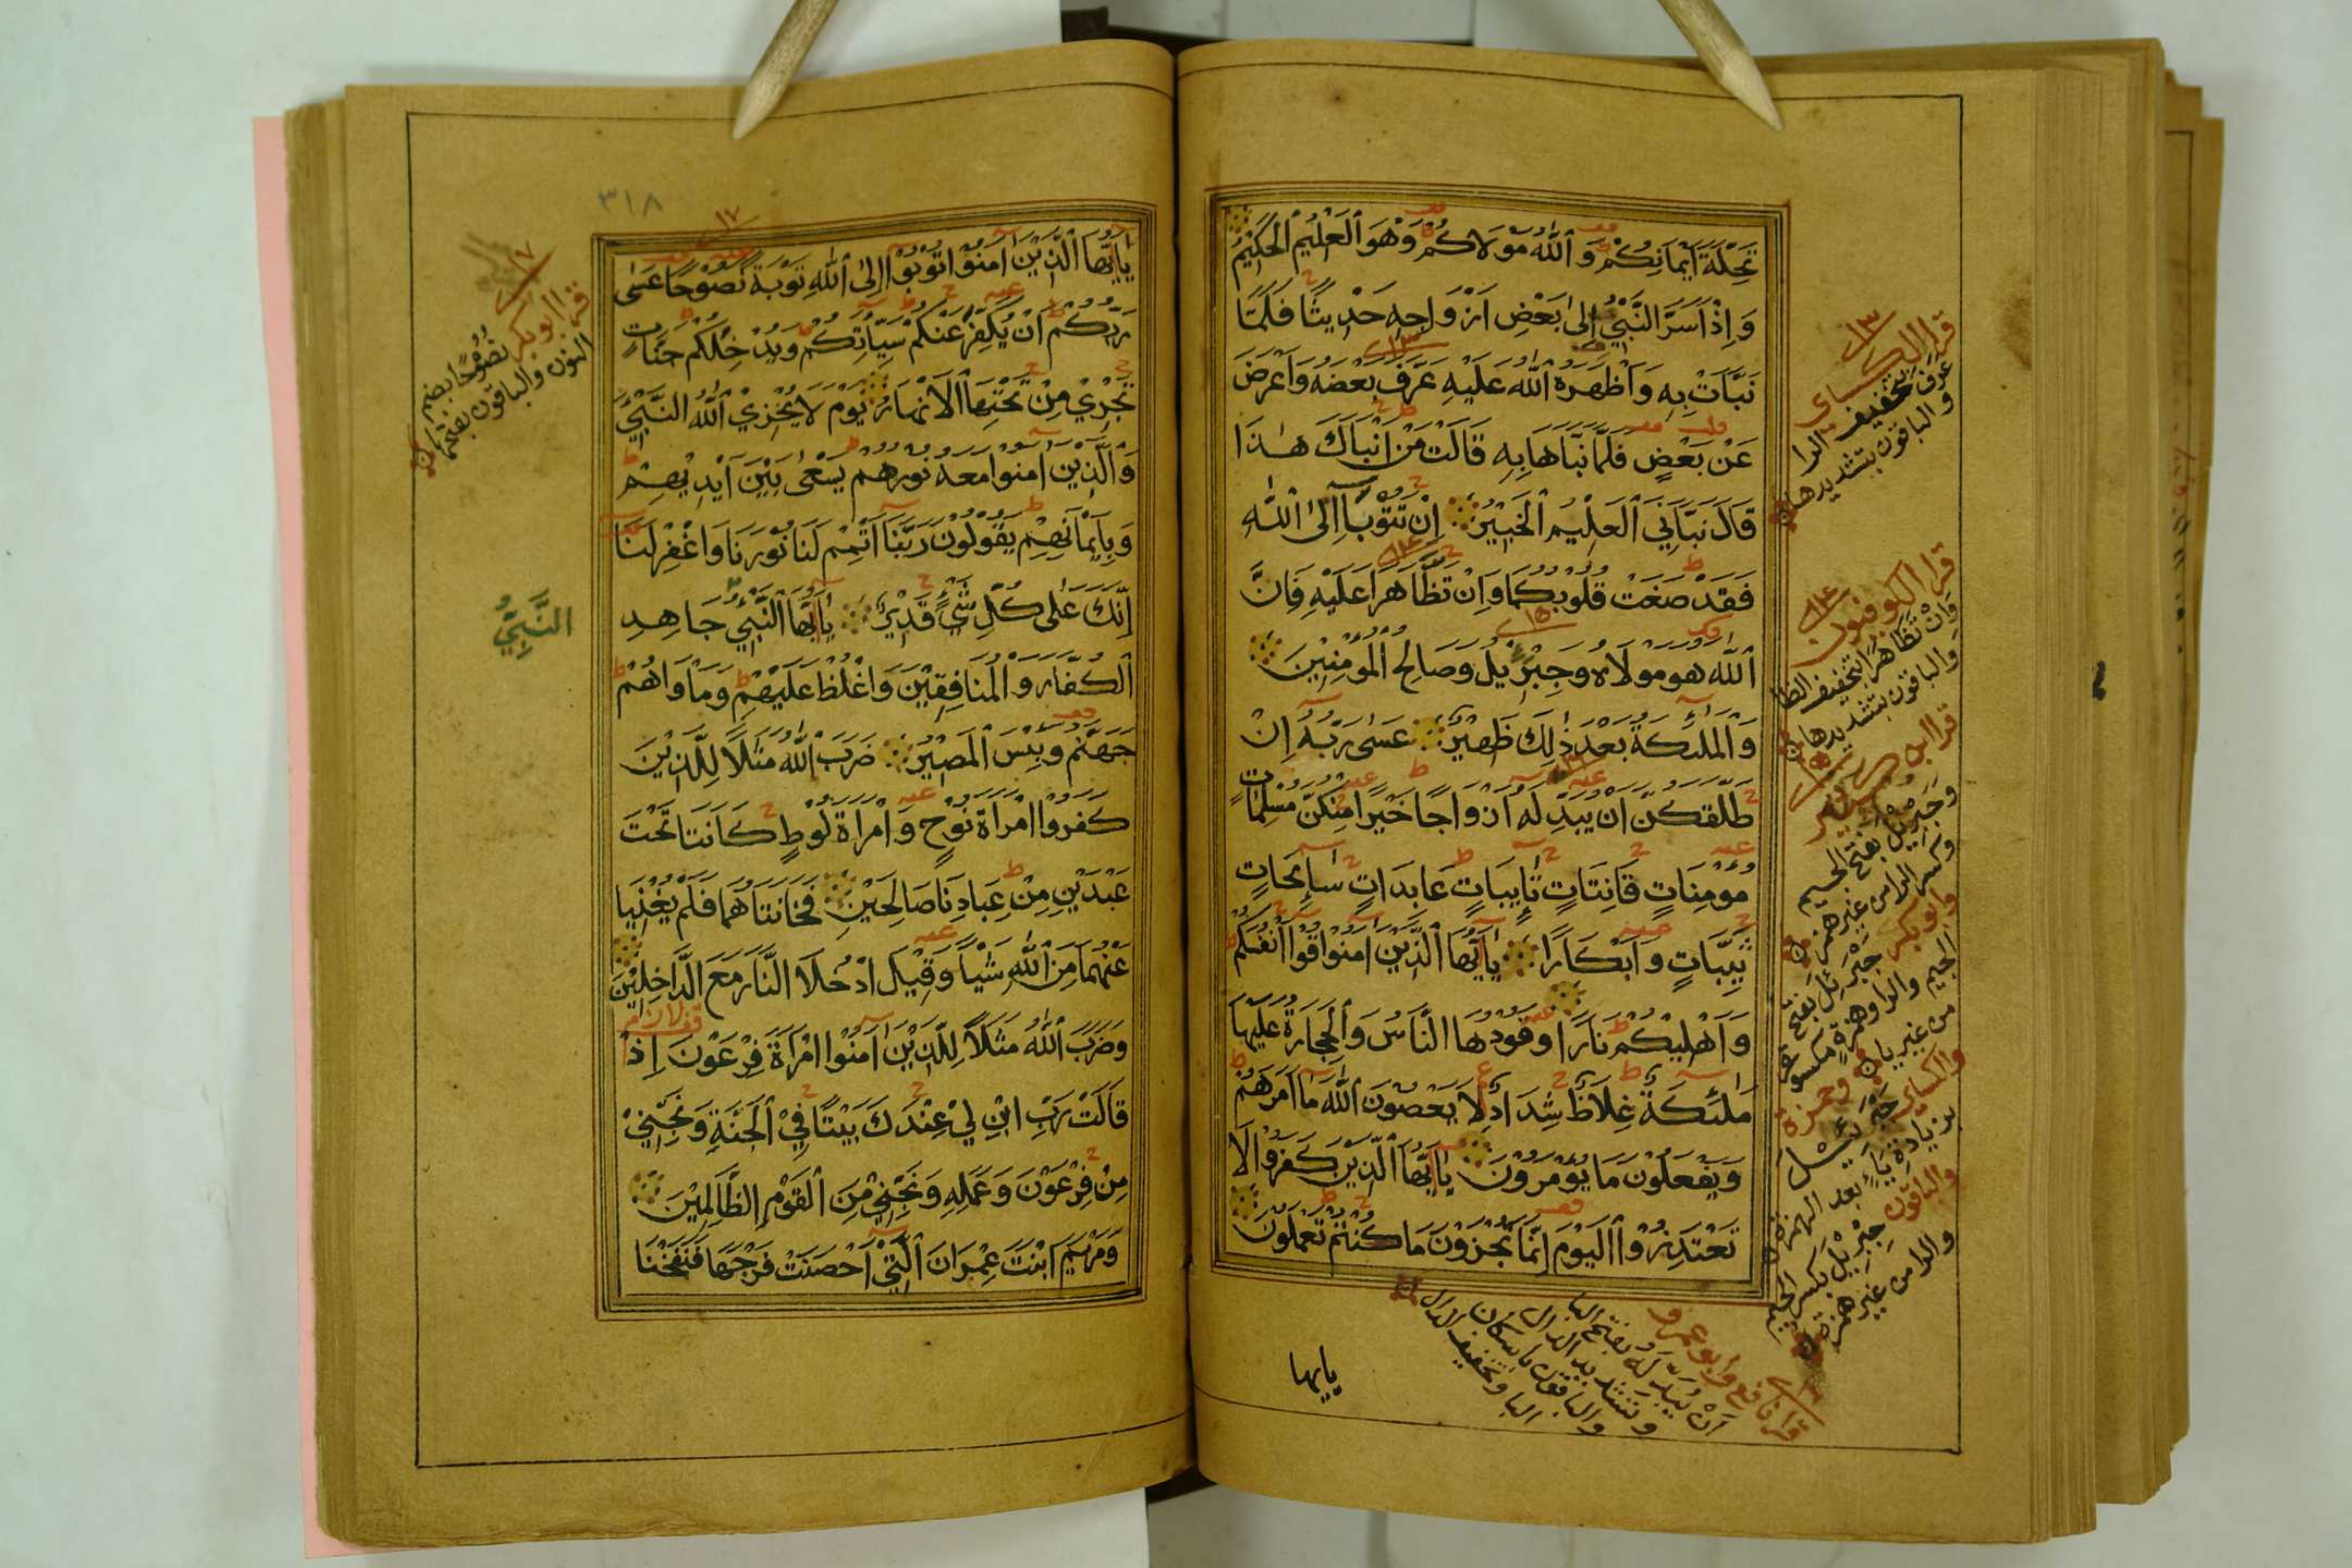 تَحِلَّةَ أَيْمَانِكُمْ وَٱللهُ مَوْلَاكُمْ وَهُوَ ٱلْعَلِيْمُ الْحَكِيْمُ
وَإِذْ أَسَرَّ النَّبِيُّ إِلىٰ بَعْضِ أَزْوَاجِهِ حَدِيثًا فَلَمَّا
نَبَّأَتْ بِهِ وَأَظْهَرَهُ ٱللهُ عَلَيْهِ عَرَّفَ بَعْضَهُ وَأَعْرَضَ
عَنْ بَعْضٍ فَلَمَّا نَبَّأَهَا بِهِ قَالَتْ مَنْ أَنْبَأَكَ هٰذَا
قَالَ نَبَّأَنِيَ ٱلْعَلِيْمُ ٱلْخَبِيْرُ إِنْ تَتُوْبَا إِلىَ ٱللهِ
فَقَدْ صَغَتْ قُلُوْبُكُمَا وَإِنْ تَظَّاهَرَا عَلَيْهِ فَإِنَّ
ٱللهَ هُوَ مَوْلَاهُ وَجِبْرِيْلُ وَصَالِحُ الْمُؤْمِنِيْنَ
وَالْمَلٰئِكَةُ بَعْدَ ذٰلِكَ ظَهِيْرٌ عَسٰى رَبُّهُ إِنْ
طَلَّقَكُنَّ أَنْ يُبَدِّلَهُ أَزْوَاجًا خَيْرًا مِنْكُنَّ مُسْلِمَاتٍ
مُؤْمِنَاتٍ قَانِتَاتٍ تَائِبَاتٍ عَابِدَاتٍ سَائِحَاتٍ
ثَيِّبَاتٍ وَأَبْكَارًا يَاأَيُّهَا ٱلَّذِيْنَ اٰمَنُوْا قُوْا أَنْفُسَكُمْ
وَأَهْلِيْكُمْ نَارًا وَقُوْدُهَا النَّاسُ وَٱلْحِجَارَةُ عَلَيْهَا
مَلٰئِكَةٌ غِلَاظٌ شِدَادٌ لَا يَعْصُوْنَ ٱللهَ مَا أَمَرَهُمْ
وَيَفْعَلُوْنَ مَا يُؤْمَرُوْنَ يَاأَيُّهَا ٱلَّذِيْنَ كَفَرُوْا لَا
تَعْتَذِرُوْا ٱلْيَوْمَ إِنَّمَا تُجْزَوْنَ مَا كُنْتُمْ تَعْمَلُوْنَ
يايها
١٣
قرا الكساى
عرف بتخفيف الرا
والباقون بتشديدها
١٤
قرا الكوفيون
وَاِنْ تَظَاهَرَا بتخفيف الظا
والباقون بتشديدها
١٥
قرا ابن كثير
وَجَبْرِيْلُ بفتح الجيم
وكسر الرا من غير همز
وابو بكر جَبْرَئِلُ بفتح
الجيم والرا وهمزة مكسورة
من غير يا وحمزة
والكسائى جَبْرَئِيْل
بزيادة ياء بعد الهمزة
والباقون جِبْرِيْلُ بكسر الجيم
والرا من غير همز
قرا نافع وابو عمرو
اَنْ يُبَدِّلَهُ بفتح البا
وتشديد الدال
والباقون باسكان
البا وتخفيف الدال
٣١٨
١٧
يَاأَيُّهَا ٱلَّذِيْنَ اٰمَنُوْا تُوْبُوْا إِلىَ ٱللهِ تَوْبَةً نَصُوْحًا عَسٰى
رَبُّكُمْ أَنْ يُكَفِّرَ عَنْكُمْ سَيِّأٰتِكُمْ وَيُدْخِلَكُمْ جَنَّاتٍ
تَجْرِيْ مِنْ تَحْتِهَا ٱلْأَنْهَارُ يَوْمَ لَا يُخْزِيْ ٱللهُ النَّبِيَّ
وَٱلَّذِيْنَ اٰمَنُوْا مَعَهُ نُوْرُهُمْ يَسْعٰى بَيْنَ أَيْدِيْهِمْ
وَبِأَيْمَانِهِمْ يَقُوْلُوْنَ رَبَّنَا أَتْمِمْ لَنَا نُوْرَنَا وَاغْفِرْ لَنَا
إِنَّكَ عَلىٰ كُلِّ شَيْءٍ قَدِيْرٌ يَاأَيُّهَا ٱلنَّبِيُّ جَاهِدِ
ٱلْكُفَّارَ وَالْمُنَافِقِيْنَ وَاغْلُظْ عَلَيْهِمْ وَمَأْوَاهُمْ
جَهَنَّمُ وَبِئْسَ ٱلْمَصِيْرُ ضَرَبَ ٱللهُ مَثَلًا لِلَّذِيْنَ
كَفَرُوْا امْرَأَةَ نُوْحٍ وَامْرَأَةَ لُوْطٍ كَانَتَا تَحْتَ
عَبْدَيْنِ مِنْ عِبَادِنَا صَالِحَيْنِ فَخَانَتَاهُمَا فَلَمْ يُغْنِيَا
عَنْهُمَا مِنَ ٱللهِ شَيْأً وَقِيْلَ ادْخُلَا النَّارَ مَعَ الدَّاخِلِيْنَ
وَضَرَبَ ٱللهُ مَثَلًا لِلَّذِيْنَ اٰمَنُوْا امْرَأَةَ فِرْعَوْنَ إِذْ
قَالَتْ رَبِّ ابْنِ لِيْ عِنْدَكَ بَيْتًا فِيْ ٱلْجَنَّةِ وَنَجِّنِيْ
مِنْ فِرْعَوْنَ وَعَمَلِهِ وَنَجِّنِيْ مِنَ ٱلْقَوْمِ الظَّالِمِيْنَ
وَمَرْيَمَ ابْنَتَ عِمْرَانَ ٱلَّتِيْ أَحْصَنَتْ فَرْجَهَا فَنَفَخْنَا
١٧
قرا ابو بكر نُصُوْحًا بضم
النون والباقون بفتحها
النَّبِيُّ